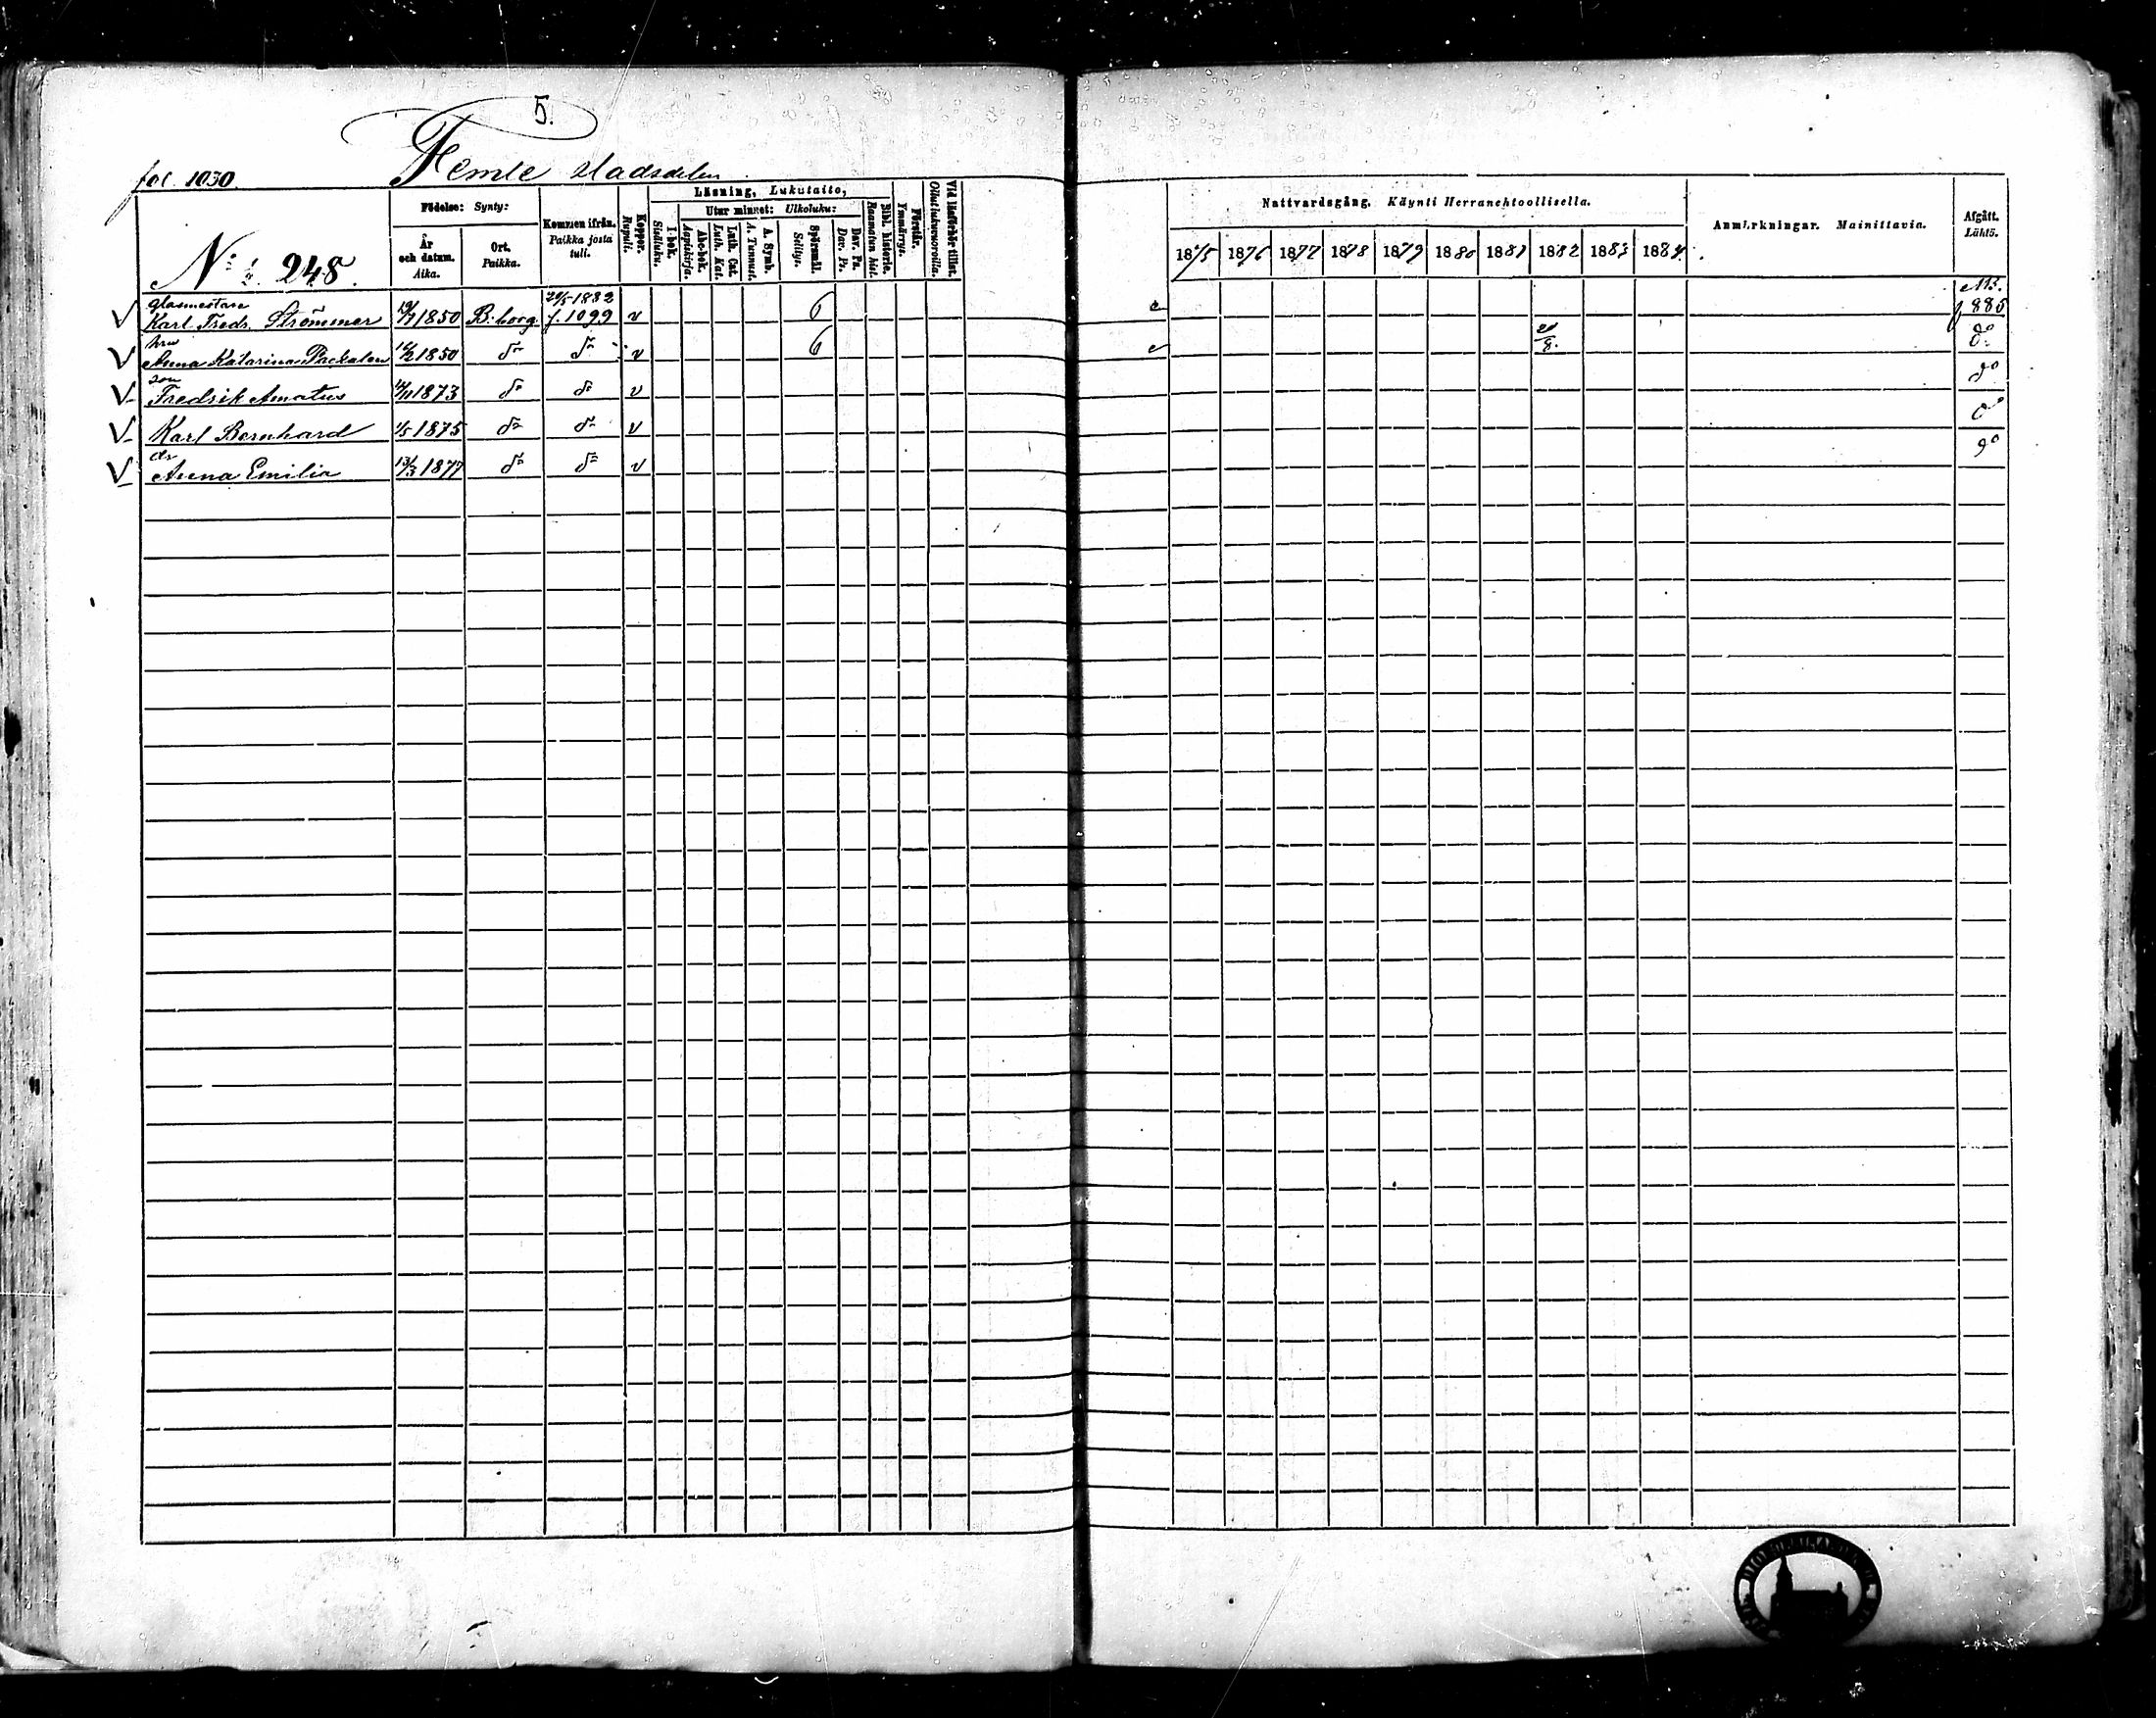 5.
fol. 1030.
Femte stadsdelen
Födelse: Synty:
Kommen ifrån.
Paikka josta tuli.
Koppor.
Rupuli.
Läsning, Lukutaito,
I bok.
Sisäluku.
Utur minnet: Ulkoluku:
Abc-bok.
Aapiskirja.
Luth. Cat.
Luth. Kat.
A. Symb.
A. Tunnust.
Spörsmål.
Selitys.
Dav. Ps.
Dav. Ps.
Bibl. historie.
Raamatun hist.
Förstår.
Ymmärrys.
Vid läsförhör tillst.
Ollut lukuwuoroilla.
År och datum.
Aika.
Ort.
Paikka.
Nattvardsgång, Käynti Herranehtoollisella.
1875 1876 1877 1878 1879 1880 1881 1882 1883 1884.
Anmärkningar. Mainittavia.
Afgått.
Lähtö.
N: 248.
glasmestare 20/5 1882
V Karl Fredr. Strömmer 1850 B:borg. f. 1099 v 6 f 885
hru
V Anna Katarina Packalen 1850 do do v 6 do
son
V Fredrik Amatus 1873 do do v do
V Karl Bernhard 1/5 1875 do do v do
dr
V Anna Emilia 13/3 1877 do do v do